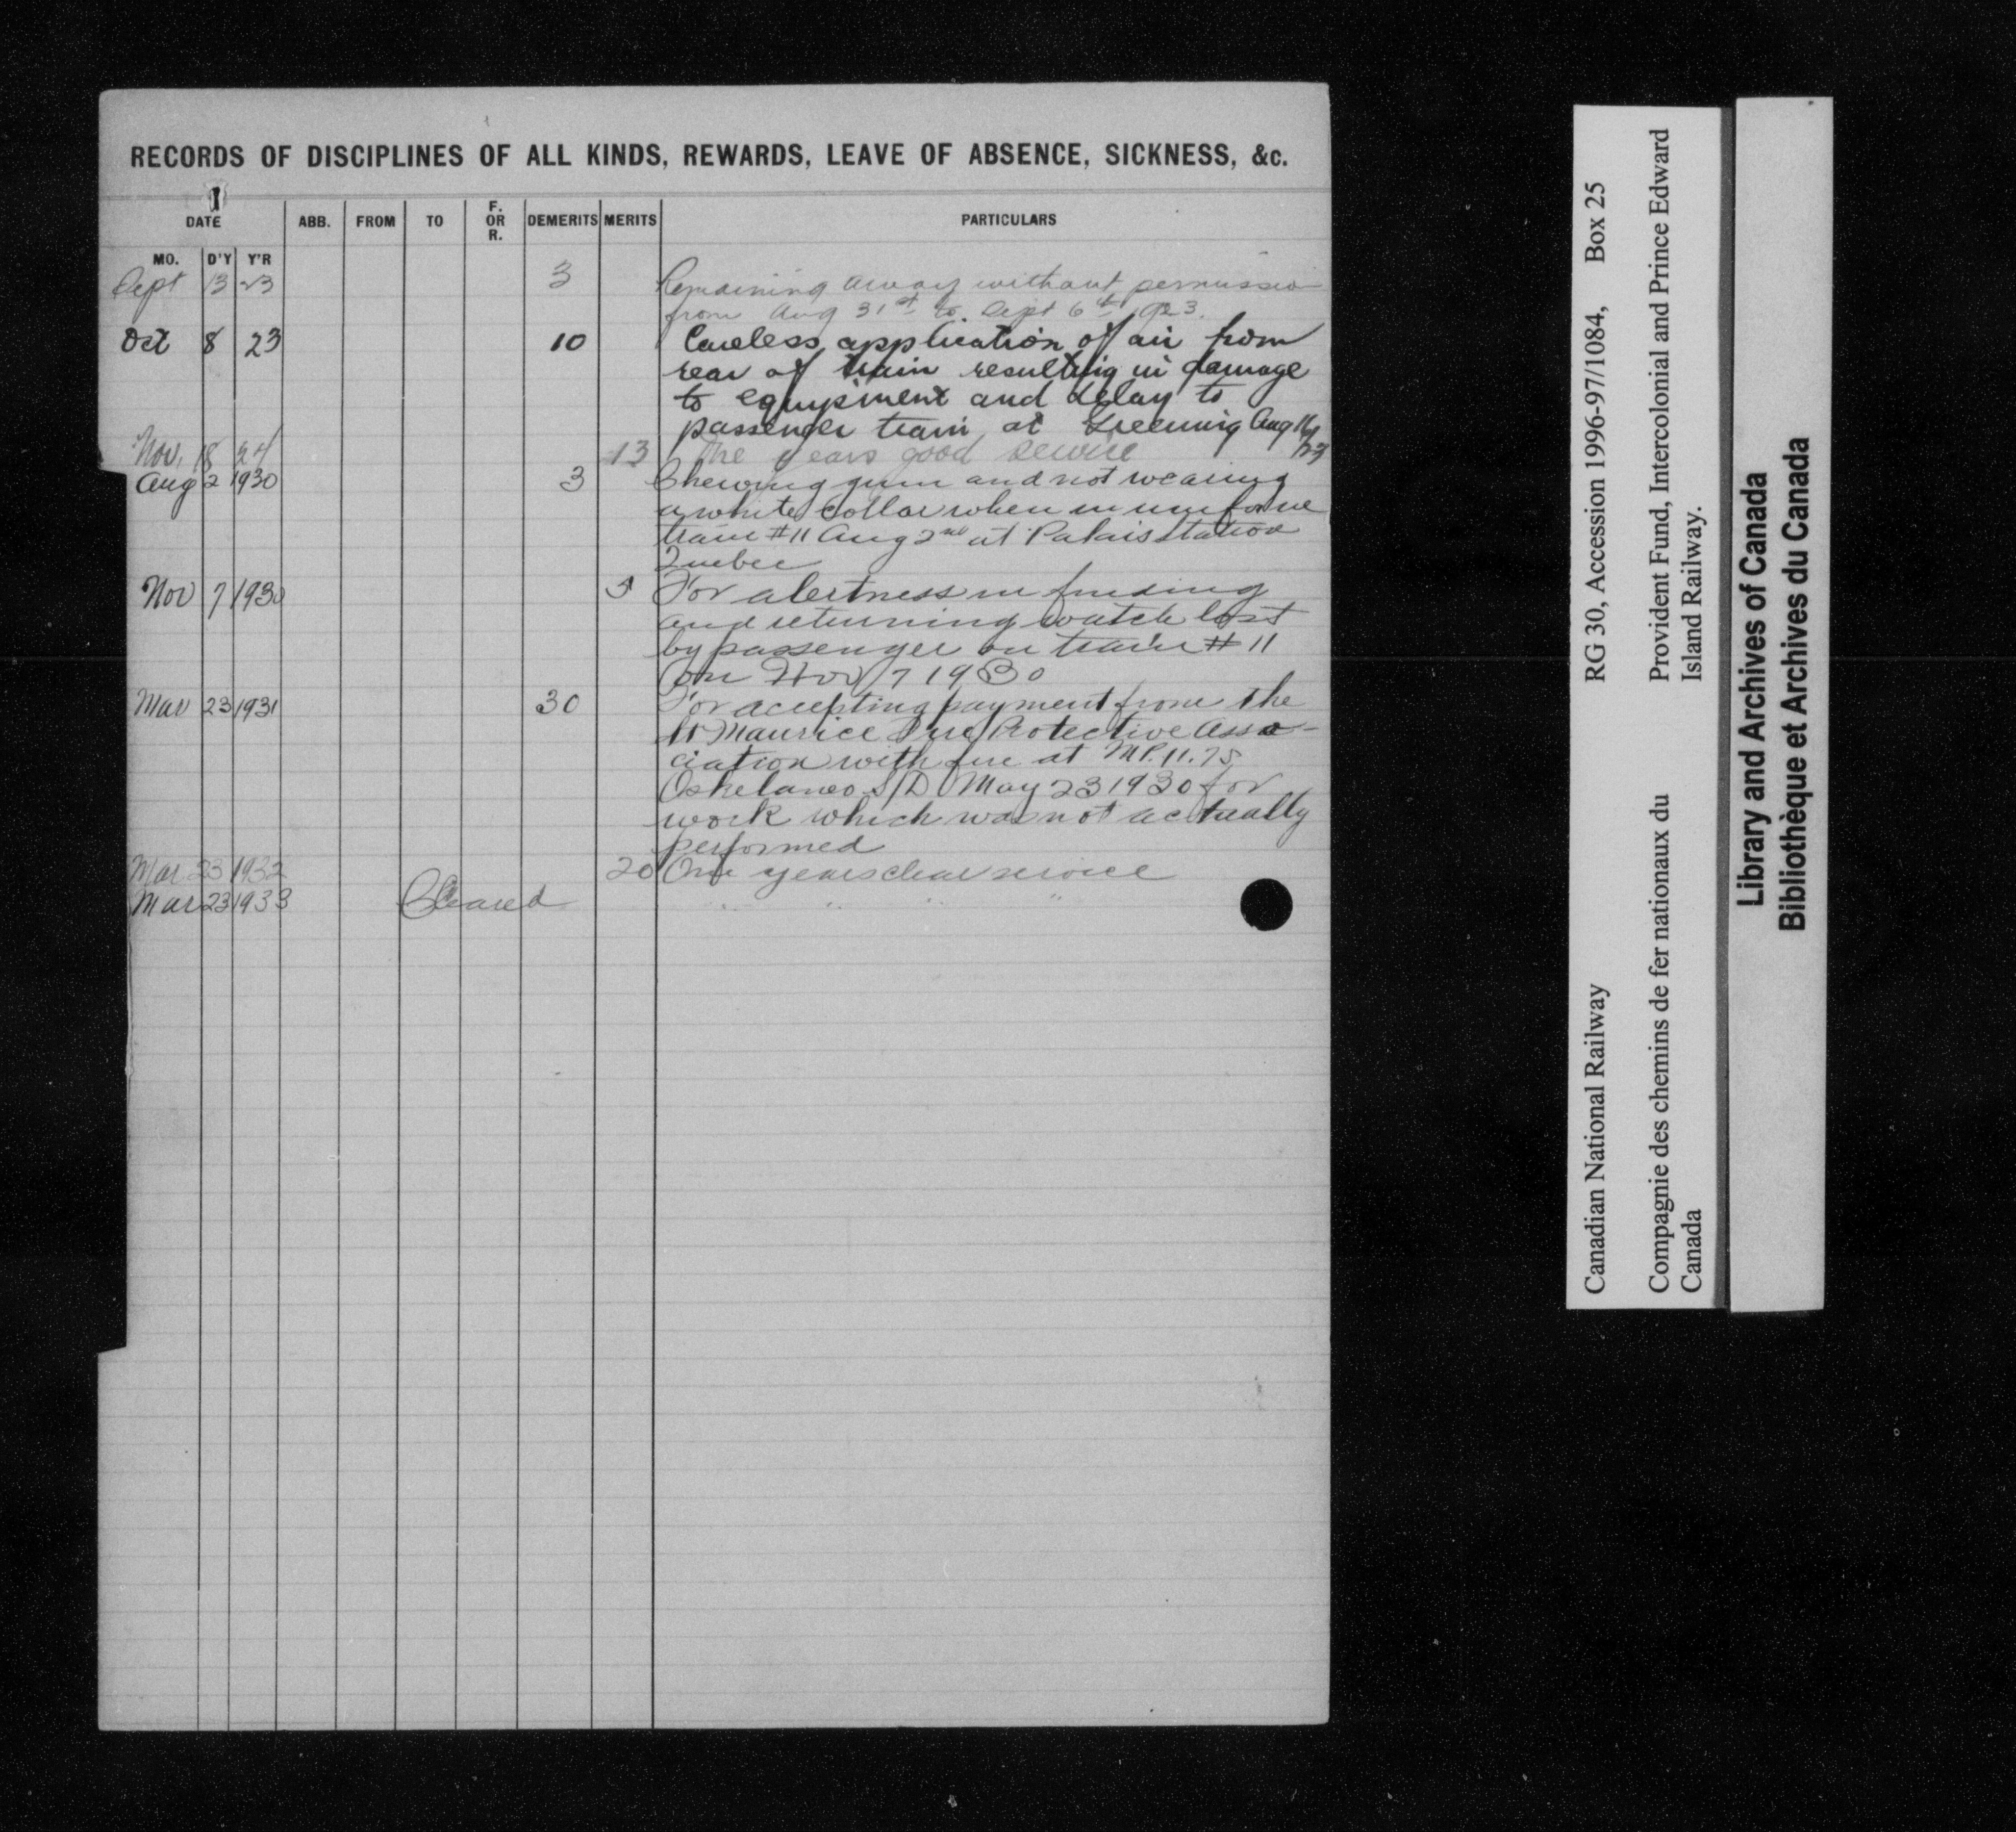 RECORDS OF DISCIPLINES OF ALL KINDS, REWARDS, LEAVE OF ABSENCE, SICKNESS, &c.
DATE ABB. FROM TO F. OR R. DEMERITS MERITS PARTICULARS
MO. D'Y Y'R
Sept 13 23 3 Remaining away without permission
from Aug 31st to Sept 6th 1923.
Oct 8 23 10 Careless application of air from
rear of train resulting in damage
to equipment and delay to
passenger train at Aug 16/23
Nov. 18 24 13 years good service
Aug 2 1930 3 Chewing gum and not wearing
a white collar when in uniforme
train #11 Aug 2nd at Palais Station
Quebec
Nov 7 1930 5 For alertness in finding
and returning watch lost
by passenger on train #11
on Nov 7 1930
Mar 23 1931 30 For accepting payment from the
St Maurice Fire Protective Asso-
ciation with fire at M.P. 11.75
Oskelaneo S/D May 23 1930 for
work which was not actually
performed
Mar 23 1932 20 One years clear service
Mar 23 1933 Cleared " " " "
Canadian National Railway RG 30, Accession 1996-97/1084, Box 25
Compagnie des chemins de fer nationaux du Canada
Provident Fund, Intercolonial and Prince Edward
Island Railway.
Library and Archives of Canada
Bibliothèque et Archives du Canada